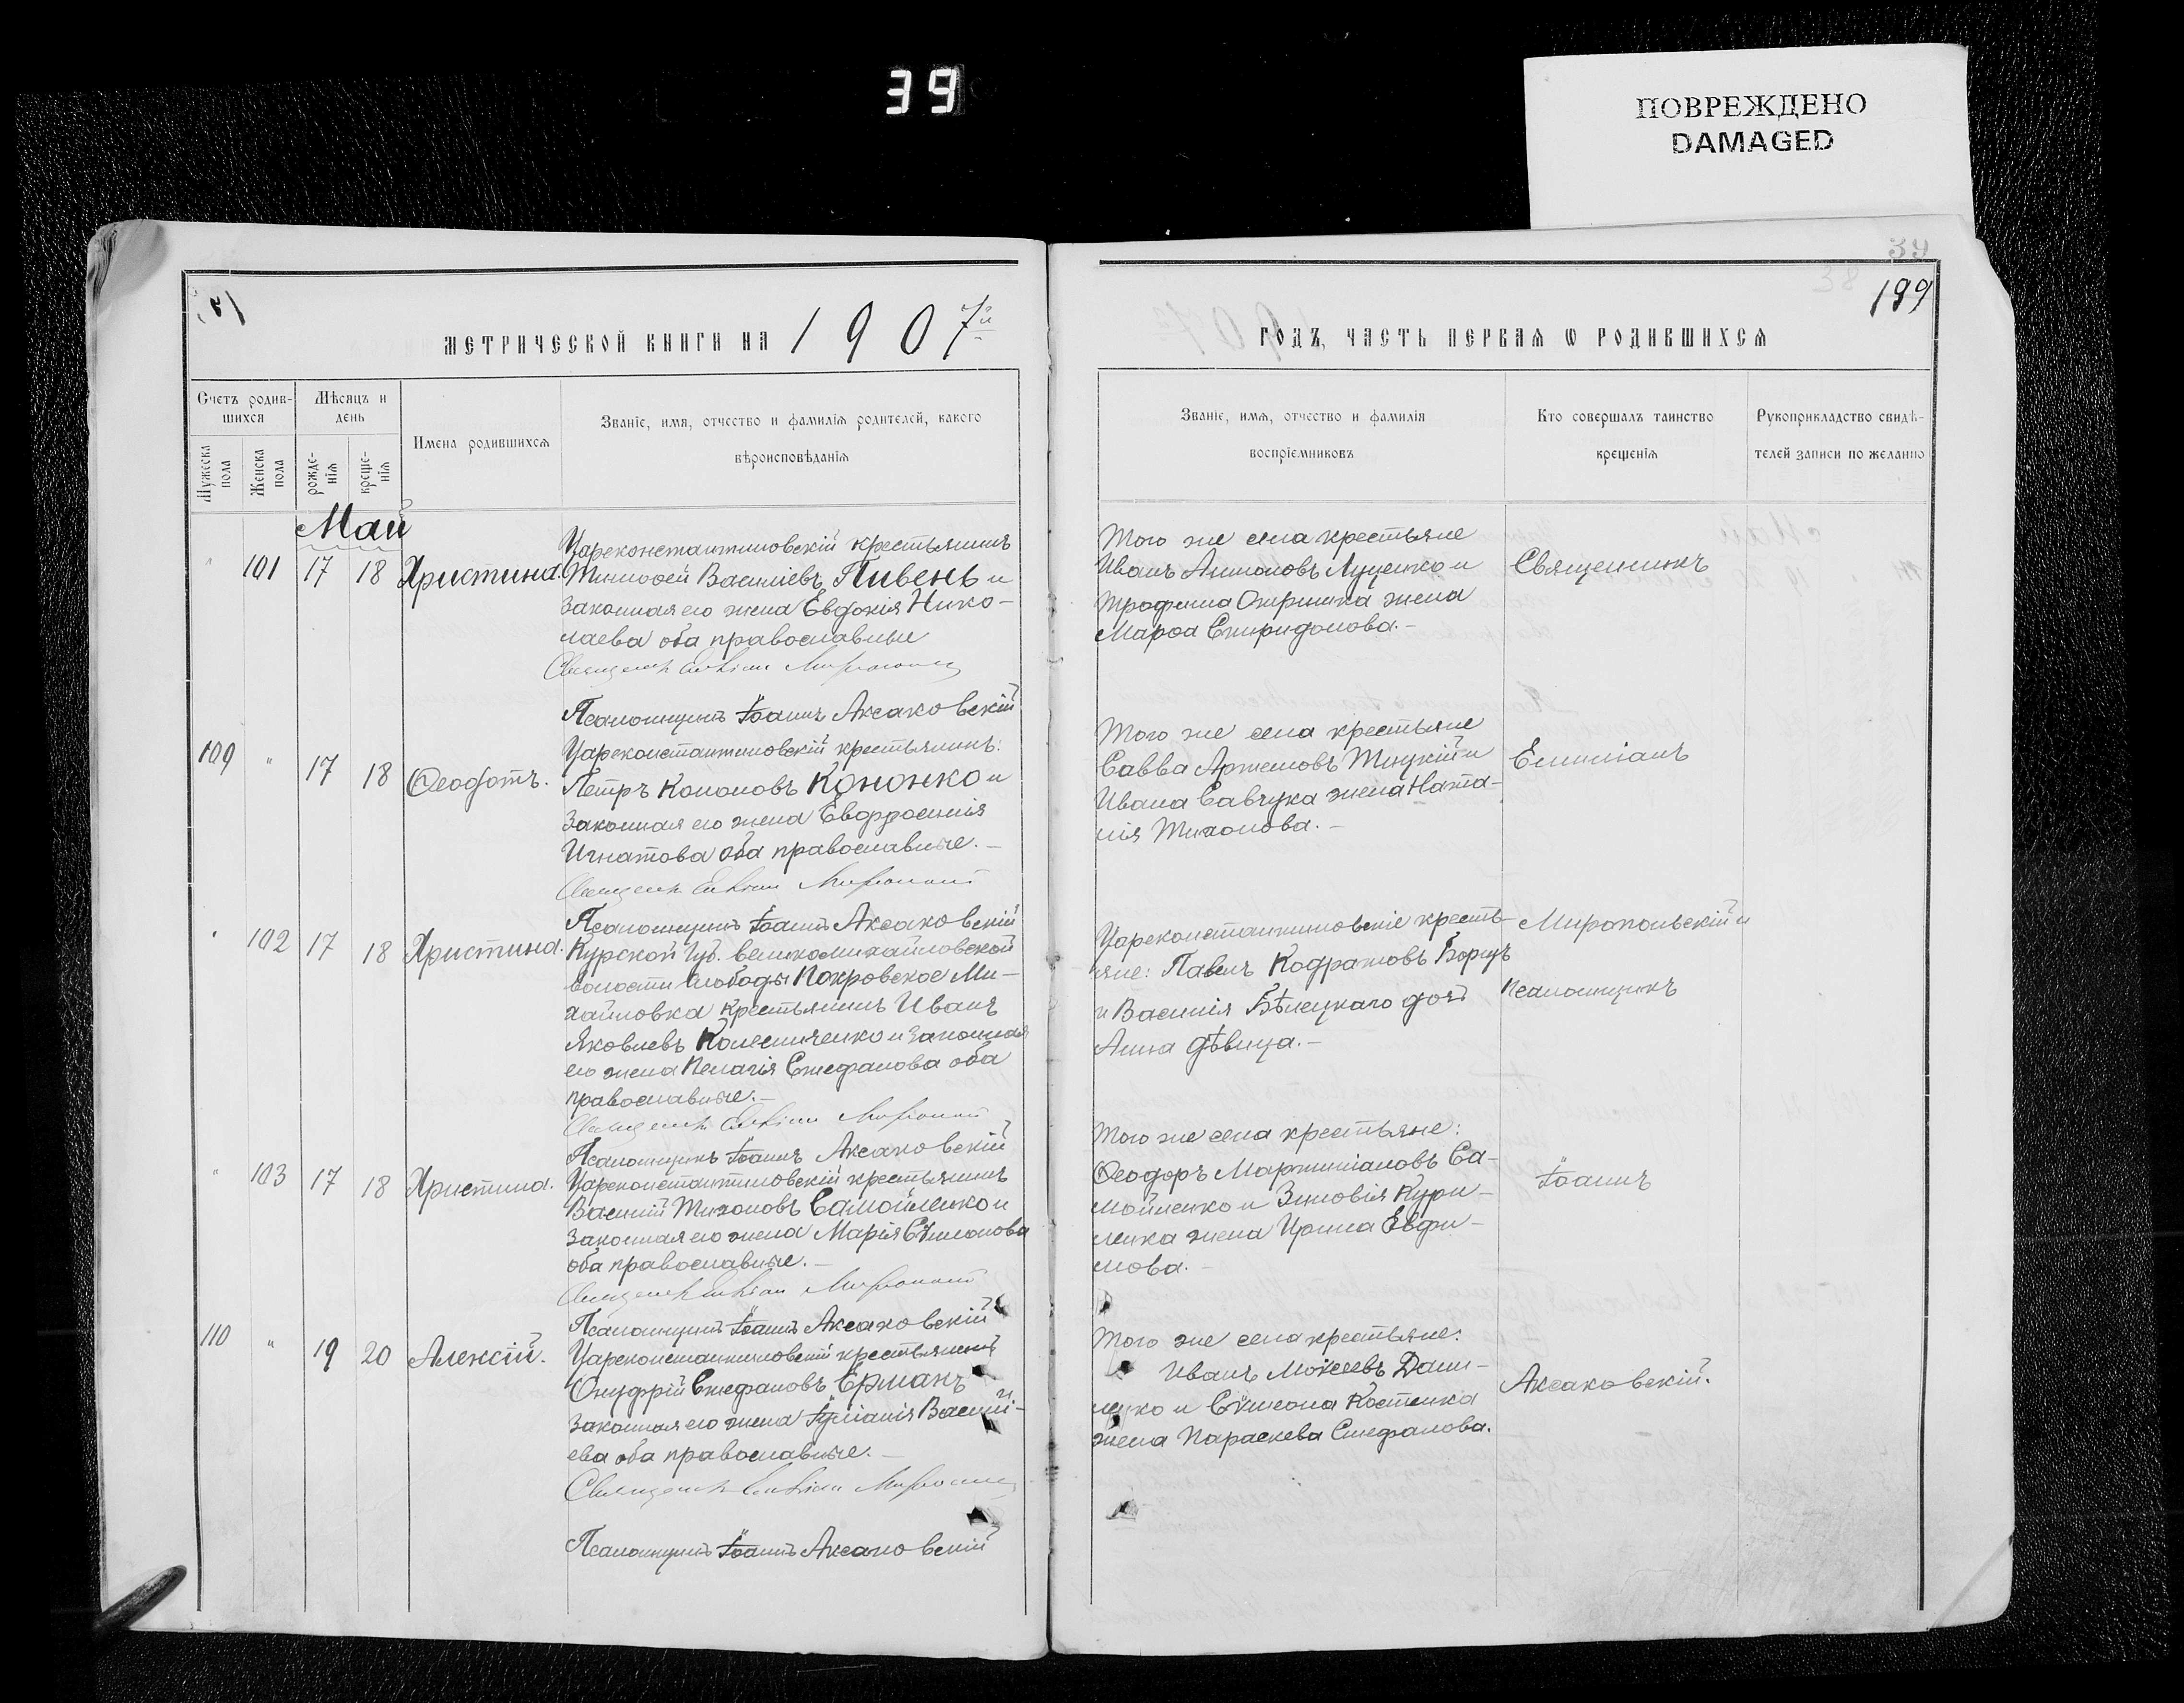 39
ПОВРЕЖДЕНО
DAMAGED
39
38
199
МЕТРИЧЕСКОЙ КНИГИ НА 1907й
ГОДЪ, ЧАСТЬ ПЕРВАЯ Ѡ РОДИВШИХСЯ
Счетъ родившихся
Мужеска пола
Женска пола
Мѣсяцъ и день
рожде-нія
креще-нія
Имена родившихся
Званіе, имя, отчество и фамилія родителей, какого
вѣроисповѣданія
Званіе, имя, отчество и фамилія
воспріемниковъ
Кто совершалъ таинство
крещенія
Рукоприкладство свидѣ-
телей записи по желанію
Май
" 101 17 18 Христина.
Цареконстантиновскій крестьянинъ
Тимоѳей Василіевъ Пивень и
законная его жена Евдокія Нико-
лаева оба православные
Священникъ
Псаломщикъ Іоаннъ Аксаковскій
Того же села крестьяне
Иванъ Антоновъ Луценко и
Трофима жена
Марѳа Спиридонова.-
Священникъ
109 " 17 18 Ѳеодотъ.
Цареконстантиновскій крестьянинъ:
Петръ Кононовъ Кононко и
законная его жена Евфросинія
Игнатова оба православные.-
Псаломщикъ Іоаннъ Аксаковскій
Того же села крестьяне
Савва Артемовъ и
Ивана Савчука жена Ната-
лія Тихонова.-
Емиліанъ
" 102 17 18 Христина.
Курской губ. великомихайловской
волости слободы Покровское Ми-
хайловка крестьянинъ Иванъ
Яковлевъ Колесниченко и законная
его жена Пелагія Стефанова оба
православные.-
Псаломщикъ Іоаннъ Аксаковскій
Цареконстантиновскіе кресть-
яне: Павелъ Кодратовъ Борщъ
и Василія Бѣлецкаго дочь
Анна дѣвица.-
Миропольскій и
псаломщикъ
" 103 17 18 Христина.
Цареконстантиновскій крестьянинъ
Василій Тихоновъ Самойленко и
законная его жена Марія Сѵмонова
оба православные.-
Псаломщикъ Іоаннъ Аксаковскій
Того же села крестьяне:
Ѳеодоръ Мартиніановъ Са-
мойленко и Зиновія Кури-
ленка жена Ирина Евфи-
мова.-
Іоаннъ
110 " 19 20 Алексій.
Цареконстантиновскій крестьянинъ
Онуфрій Стефановъ Ерманъ и
законная его жена Іуліанія Василі-
ева оба православные.-
Псаломщикъ Іоаннъ Аксаковскій
Того же села крестьяне:
Иванъ Моѵсеевъ Дани-
ленко и Сѵмеона Костенка
жена Параскева Стефанова.
Аксаковскій.